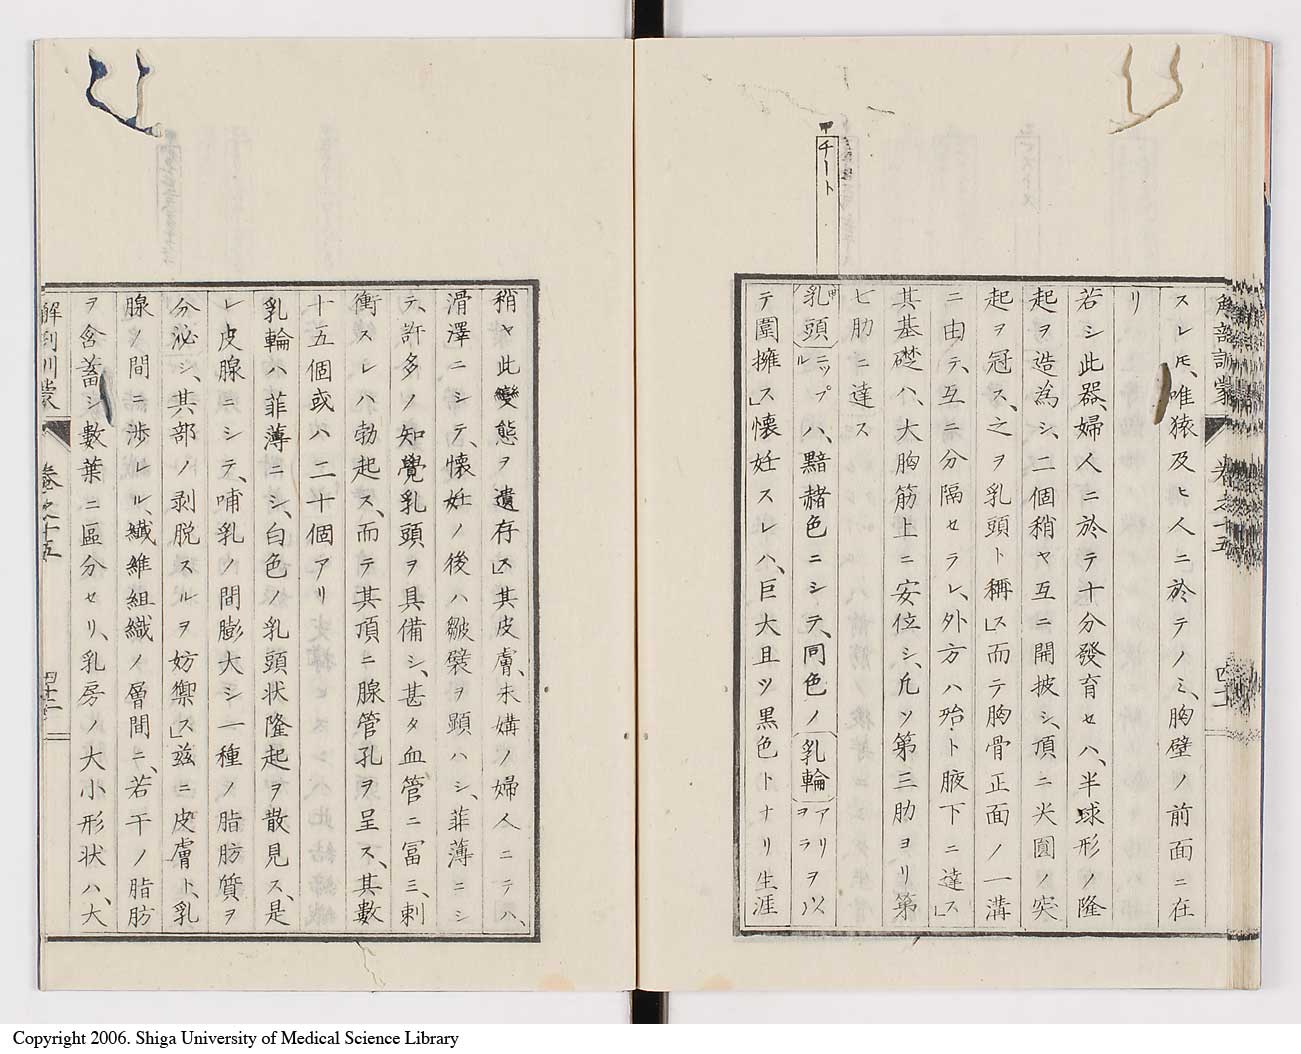 解剖訓蒙
卷之十五
四十一
チート
スレ𪜈、唯猿及ヒ人ニ於テノミ、胸壁ノ前面ニ在
リ
若シ此器、婦人ニ於テ十分發育セハ、半球形ノ隆
起ヲ造為シ、二個稍ヤ互ニ開披シ、頂ニ尖圓ノ突
起ヲ冠ス、之ヲ乳頭ト稱ス」而テ胸骨正面ノ一溝
ニ由テ、互ニ分隔セラレ、外方ハ殆ト腋下ニ達ス」
其基礎ハ、大胸筋上ニ安位シ、凢ソ第三肋ヨリ第
七肋ニ達ス
乳頭ニップルハ、黯赭色ニシテ、同色ノ乳輪アリヲラヲ以
テ圍擁ス」懐妊スレハ、巨大且ツ黒色トナリ生涯
稍ヤ此變態ヲ遺存ス」其皮膚、未媾ノ婦人ニテハ、
滑澤ニシテ、懐妊ノ後ハ皺襞ヲ顕ハシ、菲薄ニシ
テ、許多ノ知覺乳頭ヲ具備シ、甚タ血管ニ冨ミ、刺
衝スレハ勃起ス、而テ其頂ニ腺管孔ヲ呈ス、其數
十五個或ハ二十個アリ
乳輪ハ菲薄ニシ、白色ノ乳頭状隆起ヲ散見ス、是
レ皮腺ニシテ、哺乳ノ間膨大シ一種ノ脂肪質ヲ
分泌シ、其部ノ剥脱スルヲ妨禦ス」茲ニ皮膚ト、乳
腺ノ間ニ渉レル、纎維組織ノ層間ニ、若干ノ脂肪
ヲ含蓄シ數葉ニ區分セリ、乳房ノ大小形状ハ、大
解剖訓蒙
卷之十五
四十二
Copyright 2006. Shiga University of Medical Science Library